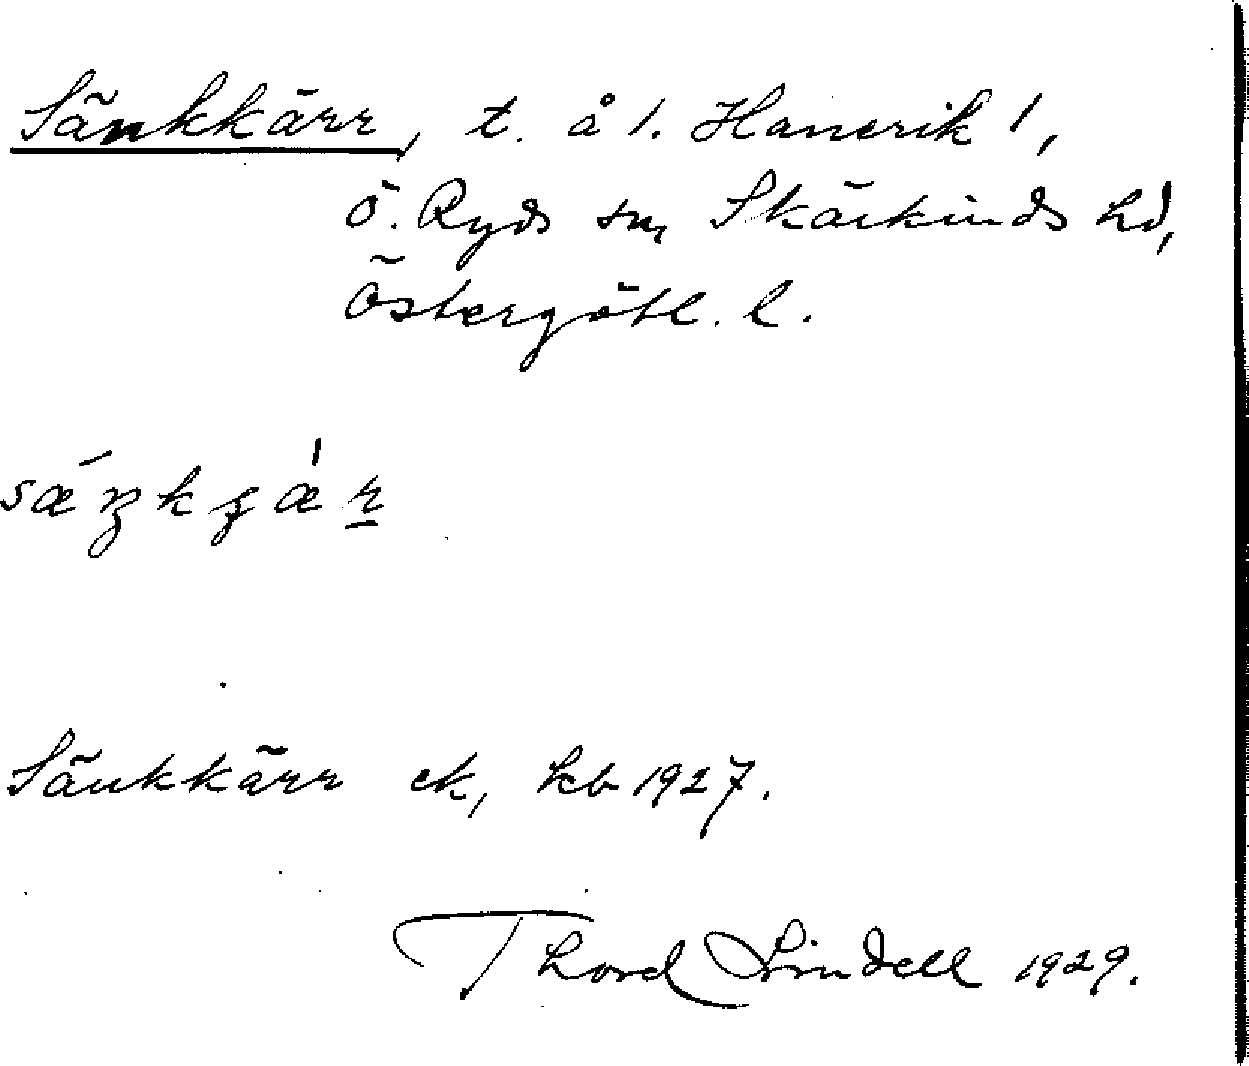 Sänkkärr, t. å 1. Hanerik 1,
Ö. Ryds sn, Skärkinds hd,
Östergötl. l.
Sänkkärr ek, kb 1927.
Thord Lindell 1929.